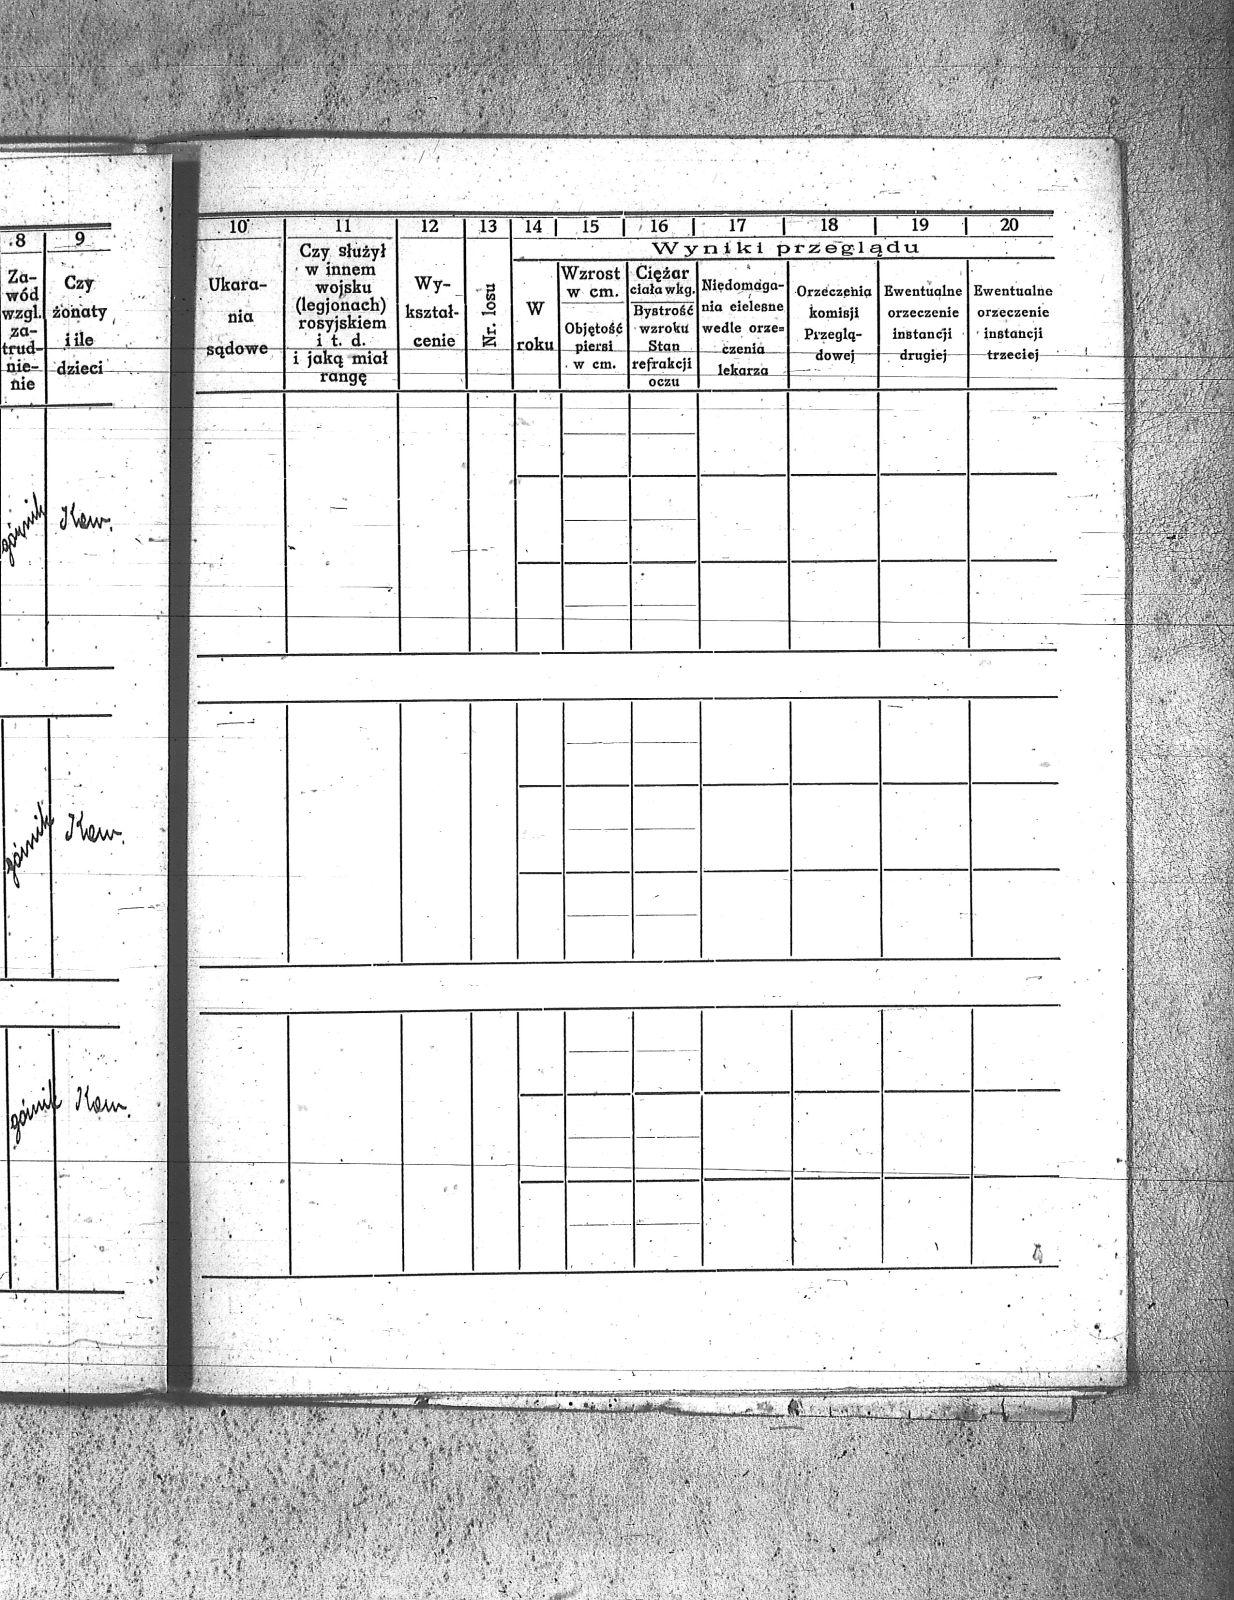 8 9
Za-
wód
wzgl.
za-
trud-
nie-
nie
Czy
żonaty
i ile
dzieci
górnik Kaw.
górnik Kaw.
górnik Kaw.
10 11 12 13 14 15 16 17 18 19 20
Wyniki przeglądu
Ukara-
nia
sądowe
Czy służył
w innem
wojsku
(legjonach)
rosyjskiem
i t. d.
i jaką miał
rangę
Wy-
kształ-
cenie
Nr. losu
W
roku
Wzrost
w cm.
Objętość
piersi
w cm.
Ciężar
ciała w kg.
Bystrość
wzroku
Stan
refrakcji
oczu
Niedomaga-
nia cielesne
wedle orze=
czenia
lekarza
Orzeczenia
komisji
Przeglą-
dowej
Ewentualne
orzeczenie
instancji
drugiej
Ewentualne
orzeczenie
instancji
trzeciej